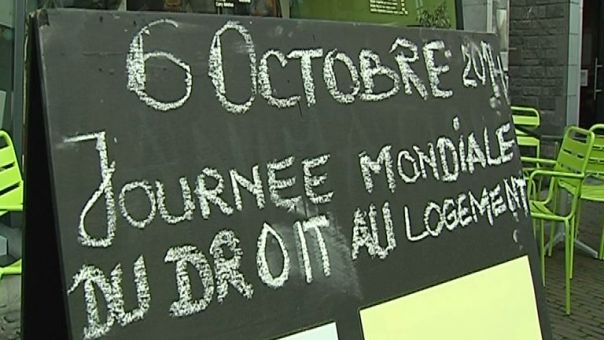 6 OCTOBRE 2014
JOURNÉE MONDIALE
DU DROIT AU LOGEMENT